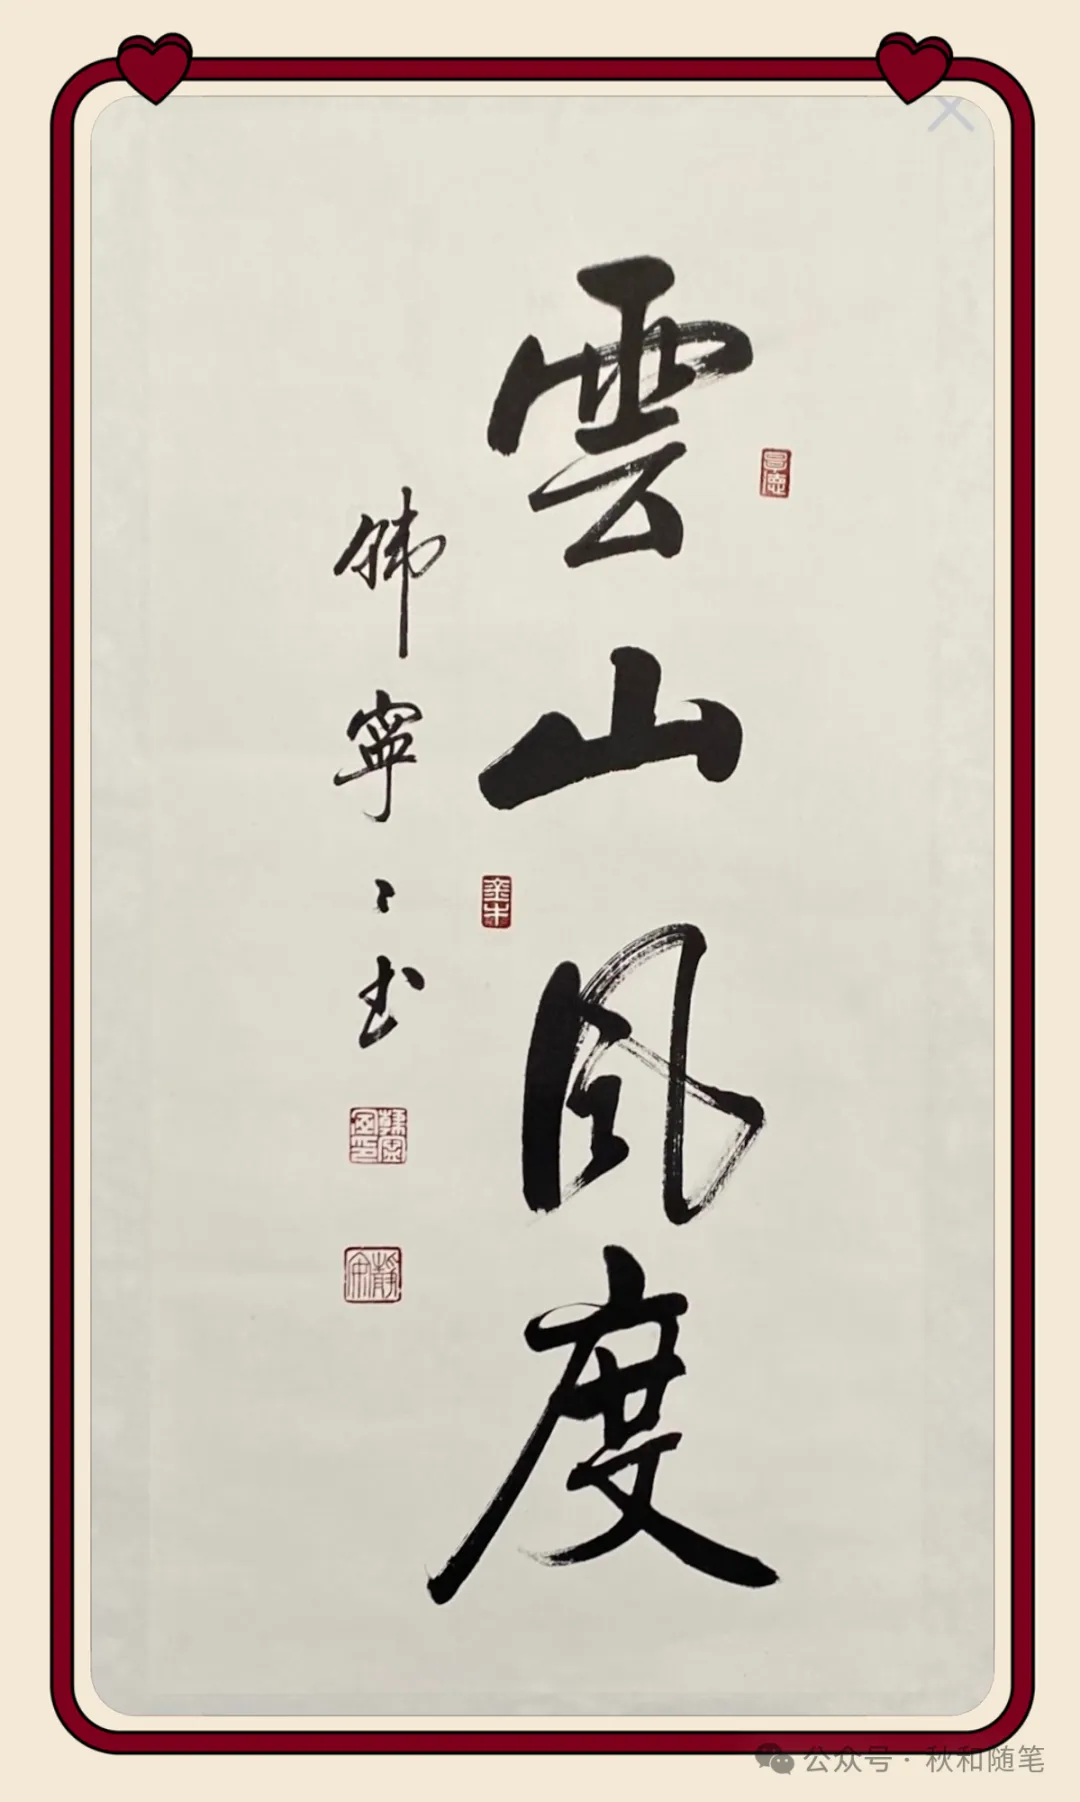 雲山風度
韩寧寧书
公众号 · 秋和随笔